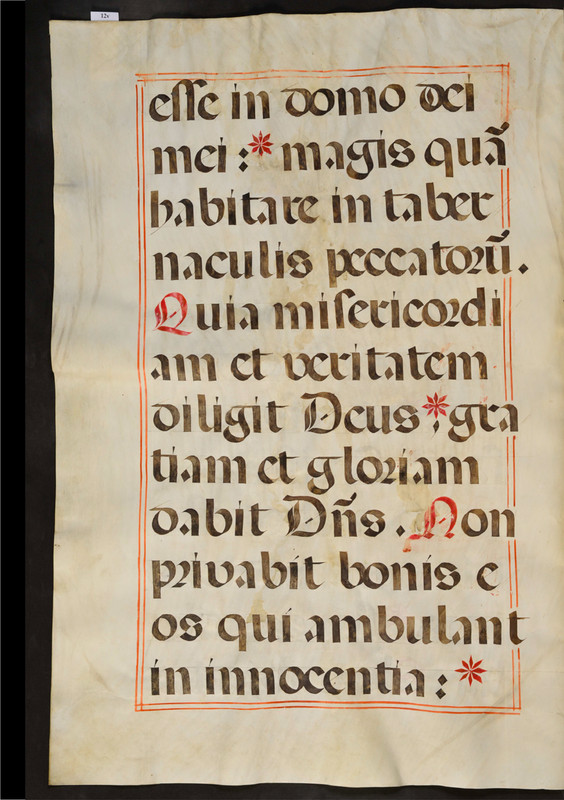 12v
esse in domo dei
mei : * magis quã
habitare in taber
naculis peccatorũ.
Quia misericordi
am et veritatem
diligit Deus * gra
tiam et gloriam
dabit Dñs. Non
privabit bonis e
os qui ambulant
in innocentia : *